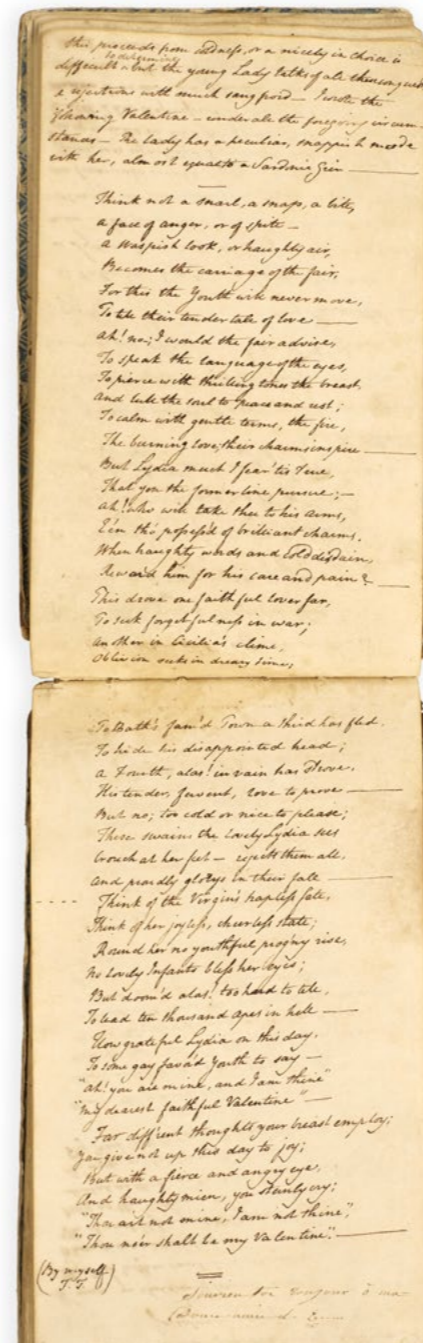 this proceeds from coldness, or a nicety in choice is
to determine
difficult but the young Lady talks of all these
rejections with much sang froid — I wrote the
following Valentine — under all the foregoing circum
stances — The Lady has a peculiar, snappish mode
with her, almost equal to a Sardonic Grin —
Think not a snarl, a snap, a bite,
a face of anger, or of spite —
a waspish look, or haughty air,
Becomes the carriage of the fair,
For this the Youth will never move,
To tell their tender tale of love —
Ah! no; I would the fair advise,
To speak the language of the eyes,
To pierce with thrilling tones the breast,
and lull the soul to peace and rest;
To calm with gentle terms, the fire,
The burning love, their charms inspire —
But Lydia much I fear 'tis True,
That you the former line pursue; —
Ah! who will take thee to his Arms,
E'en tho' possess'd of brilliant charms,
When haughty words and Cold disdain,
Reward him for his care and pain? —
This drove one faithful lover far,
To seek forgetfulness in war;
another in Cicilia's clime,
Oblivion seeks in dreary time,
To Bath's fam'd Town a third has fled.
To hide his disappointed head;
a Fourth, alas! in vain has Strove,
His tender, fervent, love to prove —
But no; too cold or nice to please;
These swains the lovely Lydia sees
Crouch at her feet — rejects them all,
and proudly glories in their fall —
Think of the Virgin's hapless fate,
Think of her joyless, cheerless state;
Round her no youthful progny rise,
No lovely Infants bless her eyes;
But doom'd alas! too hard to tell,
To lead ten thousand apes in hell —
How grateful Lydia on this day,
To some gay favor'd Youth to say —
"Ah! you are mine, and I am thine"
"My dearest faithful Valentine" —
Far diff'rent thoughts your breast employ;
You give not up this day to joy;
But with a fierce and angry eye,
And haughty mien, you sternly cry;
"Thou art not mine, I am not thine",
"Thou ne'er shall be my Valentine". —
(By myself
T. T.)